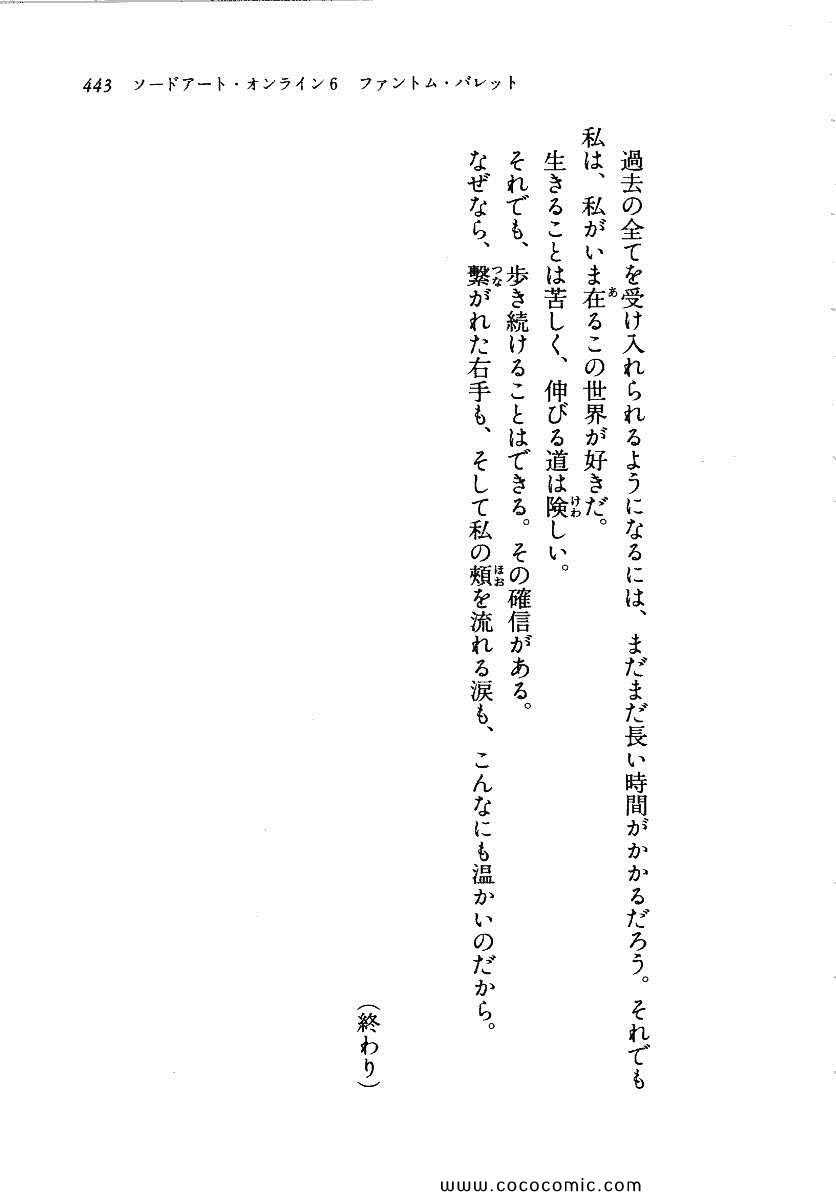 443 ソードアート・オンライン6 ファントム・バレット
過去の全てを受け入れられるようになるには、まだまだ長い時間がかかるだろう。それでも
私は、私がいま在るこの世界が好きだ。
生きることは苦しく、伸びる道は険しい。
それでも、歩き続けることはできる。その確信がある。
なぜなら、繋がれた右手も、そして私の頬を流れる涙も、こんなにも温かいのだから。
（終わり）
www.cococomic.com